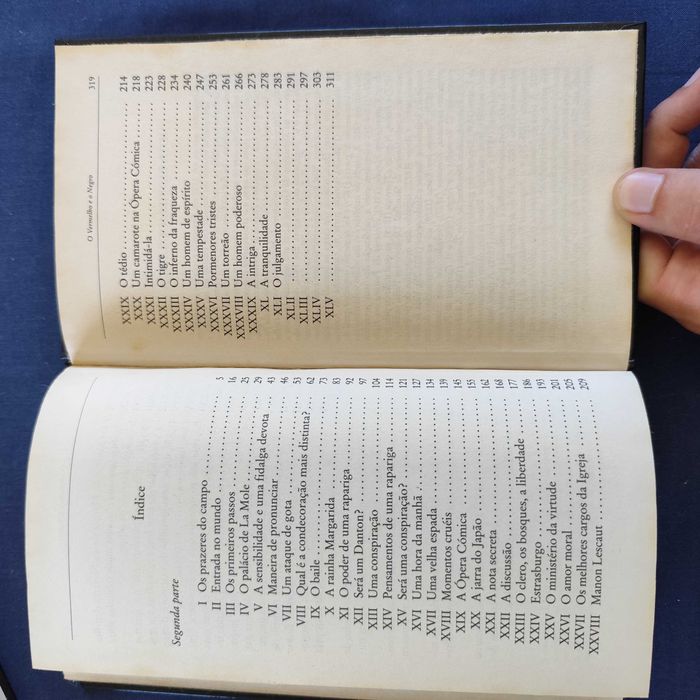 Índice
Segunda parte
I Os prazeres do campo 5
II Entrada no mundo 16
III Os primeiros passos 25
IV O palácio de La Mole 29
V A sensibilidade e uma fidalga devota 43
VI Maneira de pronunciar 46
VII Um ataque de gota 53
VIII Qual é a condecoração mais distinta? 62
IX O baile 73
X A rainha Margarida 83
XI O poder de uma rapariga 92
XII Será um Danton? 97
XIII Uma conspiração 104
XIV Pensamentos de uma rapariga 114
XV Será uma conspiração? 121
XVI Uma hora da manhã 127
XVII Uma velha espada 134
XVIII Momentos cruéis 139
XIX A Ópera Cómica 145
XX A jarra do Japão 155
XXI A nota secreta 162
XXII A discussão 168
XXIII O clero, os bosques, a liberdade 177
XXIV Estrasburgo 186
XXV O ministério da virtude 193
XXVI O amor moral 201
XXVII Os melhores cargos da Igreja 205
XXVIII Manon Lescaut 209
O Vermelho e o Negro 319
XXIX O tédio 214
XXX Um camarote na Ópera Cómica 218
XXXI Intimidá-la 223
XXXII O tigre 228
XXXIII O inferno da fraqueza 234
XXXIV Um homem de espírito 240
XXXV Uma tempestade 247
XXXVI Pormenores tristes 253
XXXVII Um torreão 261
XXXVIII Um homem poderoso 266
XXXIX A intriga 273
XL A tranquilidade 278
XLI O julgamento 283
XLII 291
XLIII 297
XLIV 303
XLV 311